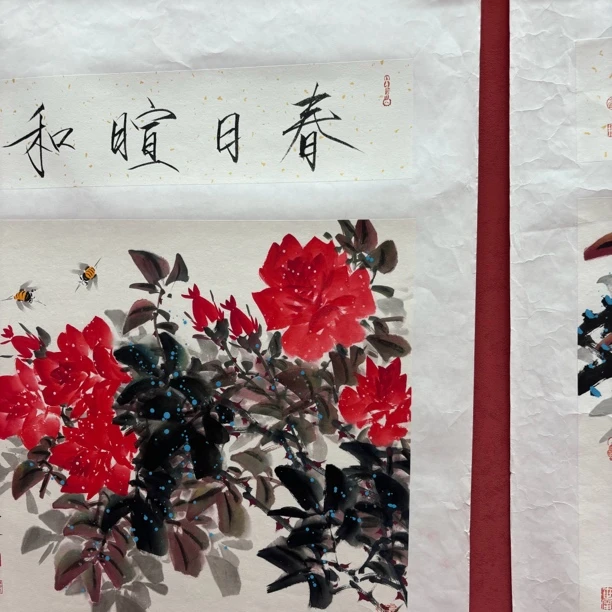 春日暄和